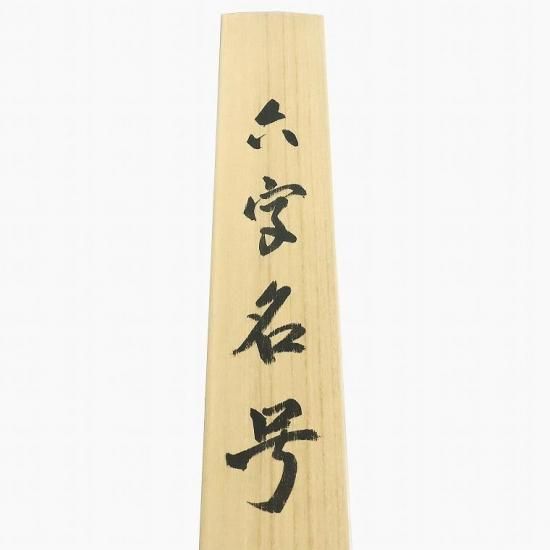 六字名号